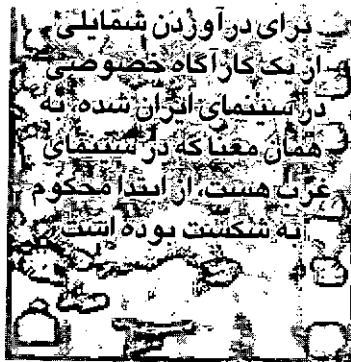 برای درآوردن شمایلی
از یک کارآگاه خصوصی
در سینمای ایران شده به
همان معنا که در سینمای
غرب هست، از ابتدا محکوم
به شکست بوده است